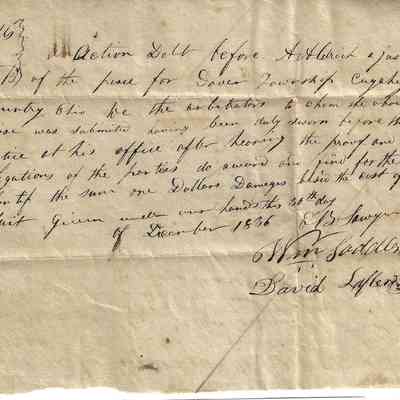 Action Debt before A Aldrich a jus
of the peace for Dover Township Cuyah
Ohio We the arbitrators to whom the whole
was submitted having been duly sworn before the
tice at his office after hearing the proof and
egations of the parties do award and find for the
the sum one Dollars Damages the cost of
uit Given under our hands this 30th day
of December 1836 E B Sawyer
Wm Saddler
David